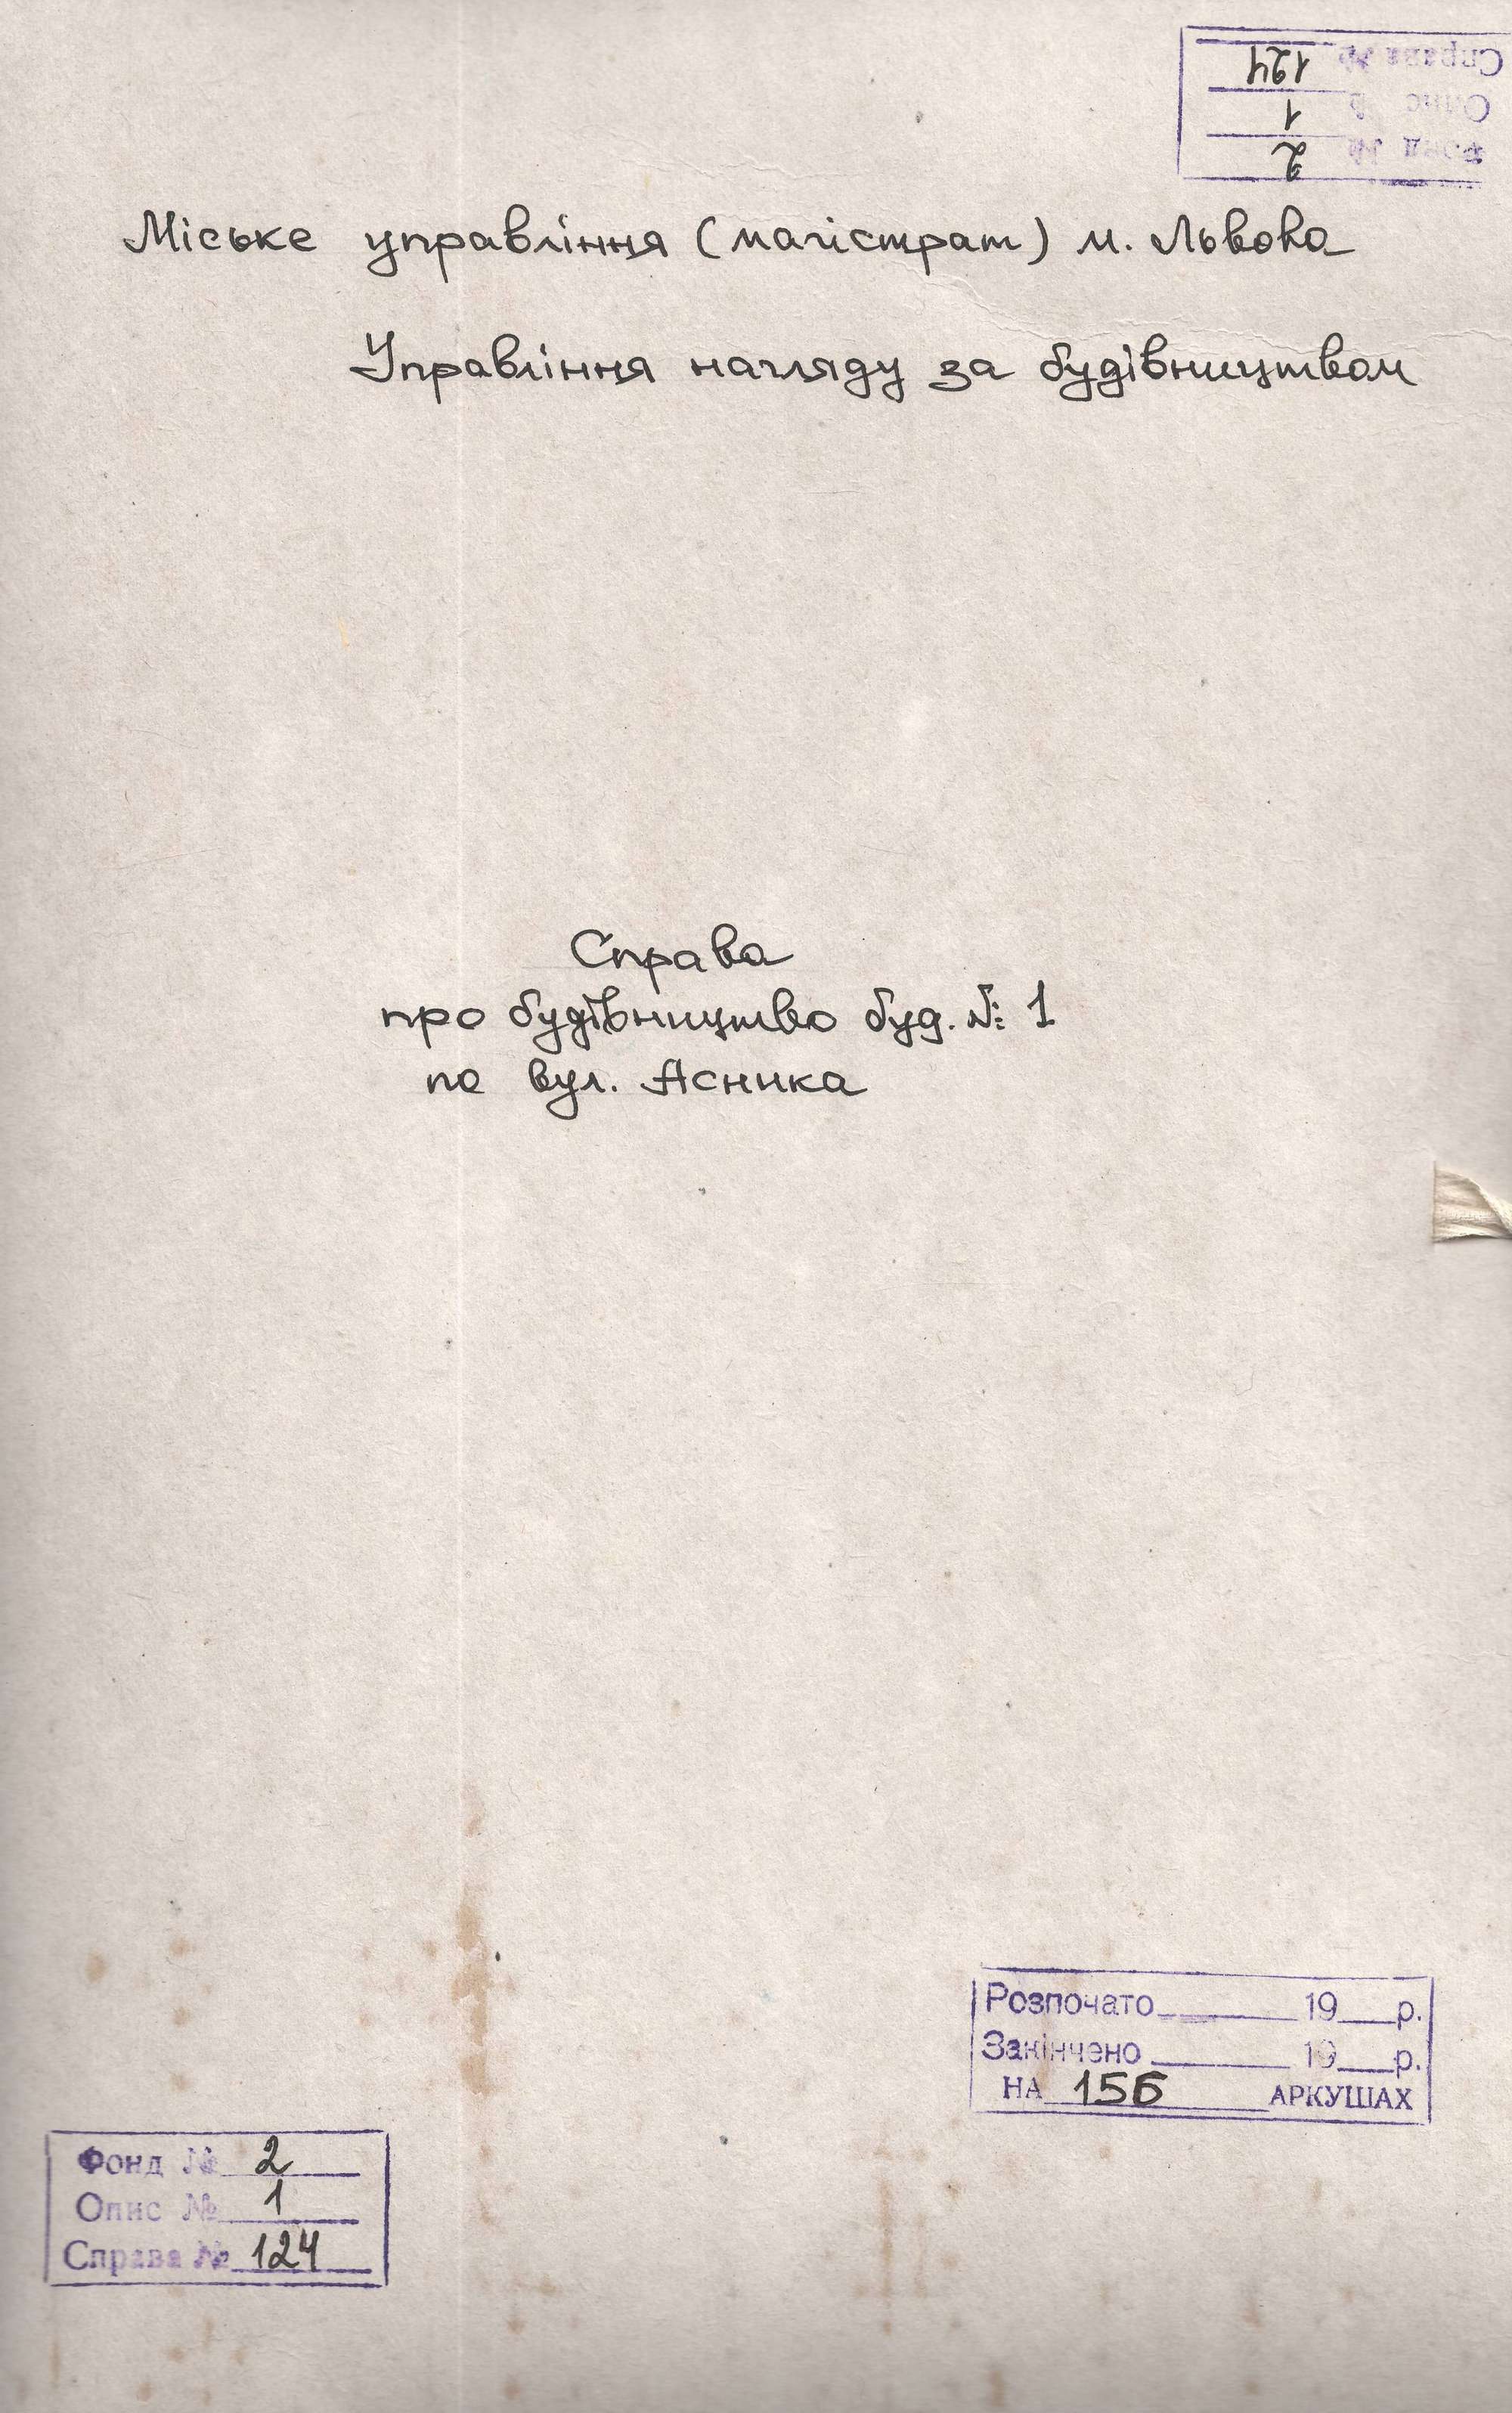 Справа № 124
Опис № 1
Фонд № 2
Міське управління (магістрат) м. Львова
Управління нагляду за будівництвом
Справа
про будівництво буд. № 1
по вул. Асника
Розпочато 19 р.
Закінчено 19 р.
НА 156 АРКУШАХ
Фонд № 2
Опис № 1
Справа № 124